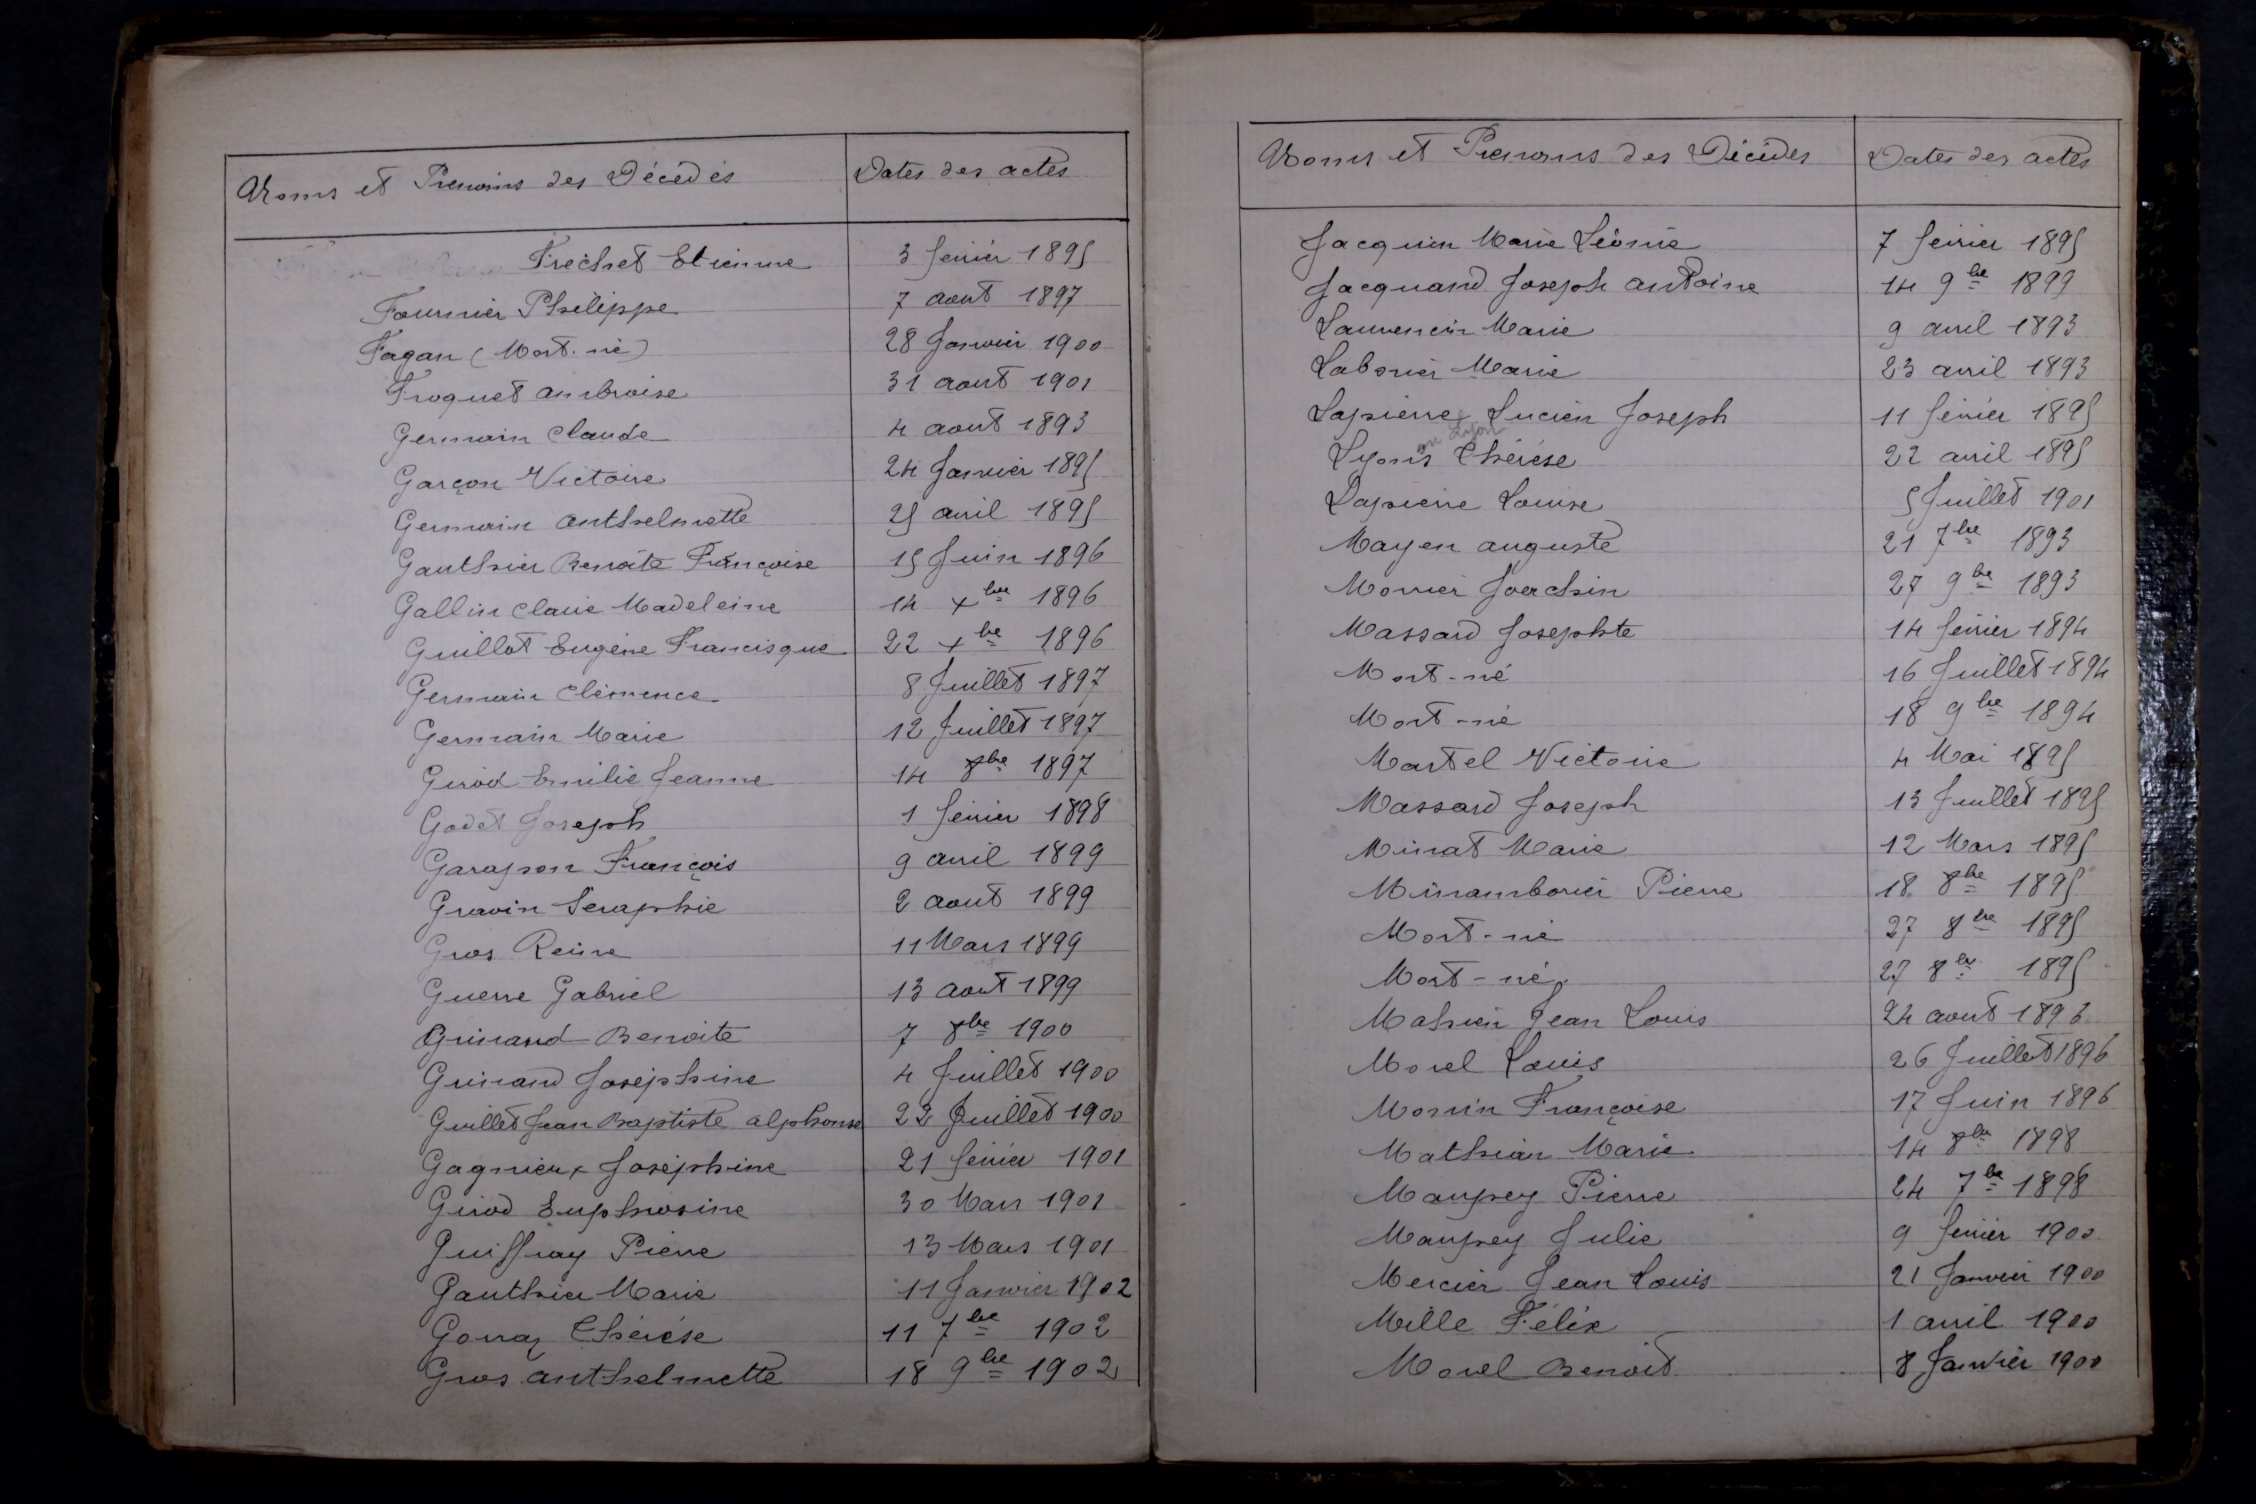 Noms et Prenoms des Décédés Dates des actes
Frechet Etienne 3 fevrier 1895
Fournier Philippe 7 aout 1897
Fagan (Mort-né) 28 Janvier 1900
Froquet ambroise 31 aout 1901
Germain Claude 4 aout 1893
Garçon Victoire 24 Janvier 1895
Germain anthelmette 25 avril 1895
Gauthier Benoite Françoise 15 Juin 1896
Gallin Claire Madeleine 14 xbre 1896
Guillot Eugène Francisque 22 xbre 1896
Germain Clémence 8 Juillet 1897
Germain Marie 12 Juillet 1897
Girod Emilie Jeanne 14 8bre 1897
Godet Joseph 1 fevrier 1898
Garapon François 9 avril 1899
Gravin Seraphie 2 aout 1899
Gros Reine 11 Mars 1899
Guerre Gabriel 13 aout 1899
Guinand Benoite 7 8bre 1900
Guinand Joséphine 4 Juillet 1900
Guillet Jean Baptiste alphonse 22 Juillet 1900
Gagnieux Joséphine 21 fevrier 1901
Girod Euphrosine 30 Mars 1901
Guiffray Pierre 13 Mars 1901
Gauthier Marie 11 Janvier 1902
Gonraz Thérèse 11 7bre 1902
Gros anthelmette 18 9bre 1902
Noms et Prenoms des Décédés Dates des actes
Jacquin Marie Léonie 7 fevrier 1895
Jacquand Joseph antoine 14 9bre 1899
Laurencin Marie 9 avril 1893
Laborier Marie 23 avril 1893
Lapierre Lucien Joseph 11 fevrier 1895
ou Lyon
Lyons Thérèse 22 avril 1895
Lapierre Louise 5 Juillet 1901
Mayen auguste 21 7bre 1893
Monier Joachin 27 9bre 1893
Massard Josephte 14 fevrier 1894
Mort-né 16 Juillet 1894
Mort-né 18 9bre 1894
Martel Victoire 4 Mai 1895
Massard Joseph 13 Juillet 1895
Minat Marie 12 Mars 1895
Miramborier Pierre 18 8bre 1895
Mort-né 27 8bre 1895
Mort-né 27 8bre 1895
Mahier Jean Louis 24 aout 1896
Morel Louis 26 Juillet 1896
Morvin Françoise 17 Juin 1896
Mathian Marie 14 8bre 1898
Maupey Pierre 24 7bre 1898
Maupey Julie 9 fevrier 1900
Mercier Jean Louis 21 Janvier 1900
Mille Félix 1 avril 1900
Morel Benoit 8 Janvier 1900